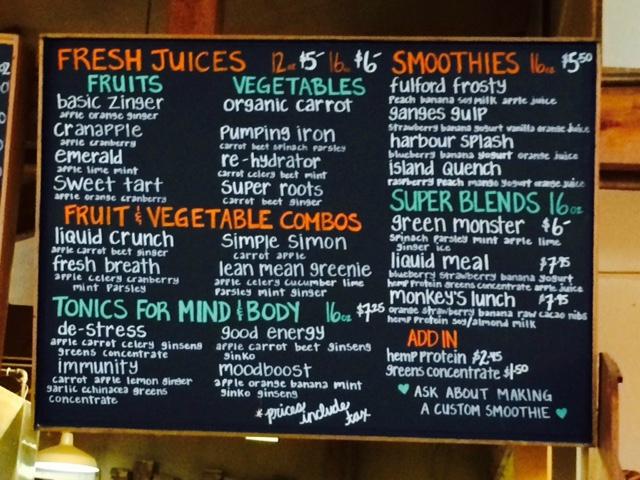 FRESH JUICES 12oz $5- 16oz $6-
FRUITS
basic zinger
apple orange ginger
cranapple
apple cranberry
emerald
apple lime mint
sweet tart
apple orange cranberry
VEGETABLES
organic carrot
pumping iron
carrot beet spinach parsley
re-hydrator
carrot celery beet mint
super roots
carrot beet ginger
FRUIT & VEGETABLE COMBOS
liquid crunch
apple carrot beet ginger
fresh breath
apple celery cranberry
mint parsley
simple simon
carrot apple
lean mean greenie
apple celery cucumber lime
parsley mint ginger
TONICS FOR MIND & BODY 16oz $7.25
de-stress
apple carrot celery ginseng
greens concentrate
immunity
carrot apple lemon ginger
garlic echinacea greens
concentrate
good energy
apple carrot beet ginseng
ginko
moodboost
apple orange banana mint
ginko ginseng
*prices include
tax
SMOOTHIES 16oz $5.50
fulford frosty
peach banana soy milk apple juice
ganges gulp
strawberry banana yogurt vanilla orange juice
harbour splash
blueberry banana yogurt orange juice
island quench
raspberry peach mango yogurt orange juice
SUPER BLENDS 16oz
green monster $6-
spinach parsley mint apple lime
ginger ice
liquid meal $7.75
blueberry strawberry banana yogurt
hemp protein greens concentrate apple juice
monkey's lunch $7.75
orange strawberry banana raw cacao nibs
hemp protein soy/almond milk
ADD IN
hemp protein $2.45
greens concentrate $1.50
ASK ABOUT MAKING
A CUSTOM SMOOTHIE